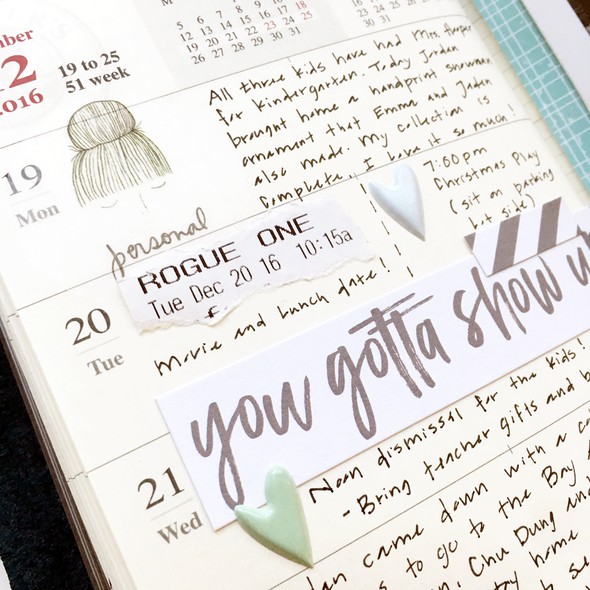 12
2016
19 to 25
51 week
M
4 5
12 11
19 18
26 25
5 6 7 8 9 10 11
12 13 14 15 16 17 18
19 20 21 22 23 24 25
26 27 28 29 30 31
23 24
30 31
19
Mon
All three kids have had Mrs. Harper
for kindergarten. Today Jordan
brought home a handprint snowman
ornament that Emma and Jaden
also made. My collection is
complete. I love it so much!
7:00pm
Christmas Play
(sit on parking
lot side)
personal
ROGUE ONE
Tue Dec 20 16 10:15a
20
Tue
Movie and Lunch date!
you gotta show
21
Wed
Noon dismissal for the kids!
- Bring teacher gifts and
came down with a
to go to the Bay
Chu Dung and
home